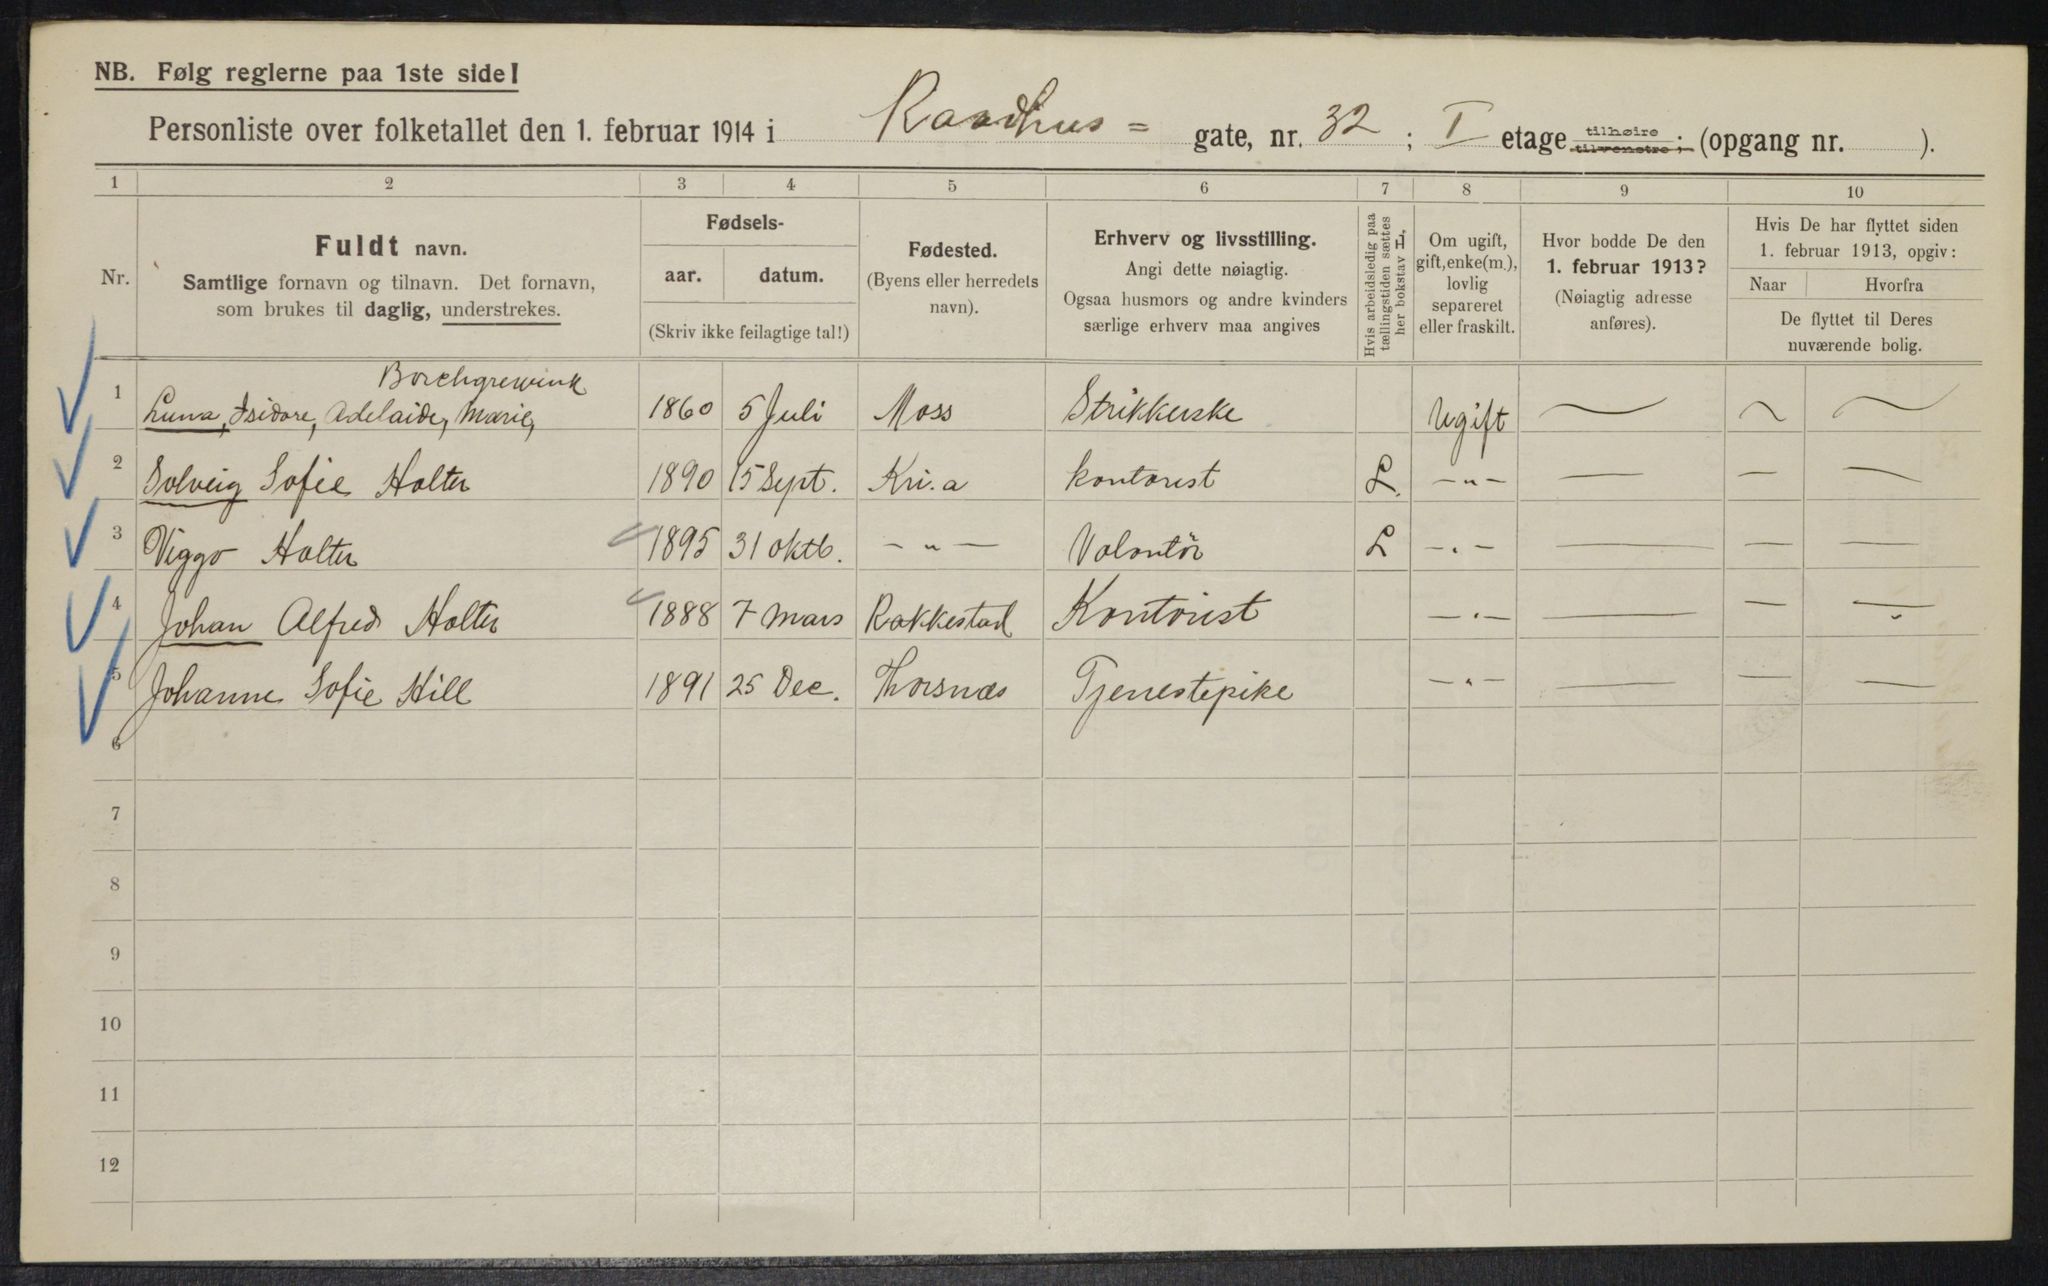 NB. Følg reglerne paa 1ste side!
Personliste over folketallet den 1. februar 1914 i Raadhus= gate, nr. 32 ; I etage tilhøire tilvenstre; (opgang nr. ).
1 2 3 4 5 6 7 8 9 10
Nr.
Fuldt navn.
Samtlige fornavn og tilnavn. Det fornavn,
som brukes til daglig, understrekes.
Fødsels-
aar. datum.
(Skriv ikke feilagtige tal!)
Fødested.
(Byens eller herredets
navn).
Erhverv og livsstilling.
Angi dette nøiagtig.
Ogsaa husmors og andre kvinders
særlige erhverv maa angives
Hvis arbeidsledig paa
tællingstiden sættes
her bokstav L.
Om ugift,
gift, enke(m.),
lovlig
separeret
eller fraskilt.
Hvor bodde De den
1. februar 1913?
(Nøiagtig adresse
anføres).
Hvis De har flyttet siden
1. februar 1913, opgiv:
Naar Hvorfra
De flyttet til Deres
nuværende bolig.
Borchgrewink
1 Luna, Isidore, Adelaide, Marie, 1860 5 Juli Moss Strikkerske Ugift
2 Solveig Sofie Holter 1890 15 Sept. Kri.a kontorist L. -"-
3 Viggo Holter 1895 31 oktb. -"- Volontör L -"-
4 Johan Alfred Holter 1888 7 mars Rakkestad Kontorist -"-
5 Johanne Sofie Hill 1891 25 Dec. Thorsnæs Tjenestepike -"-
6
7
8
9
10
11
12